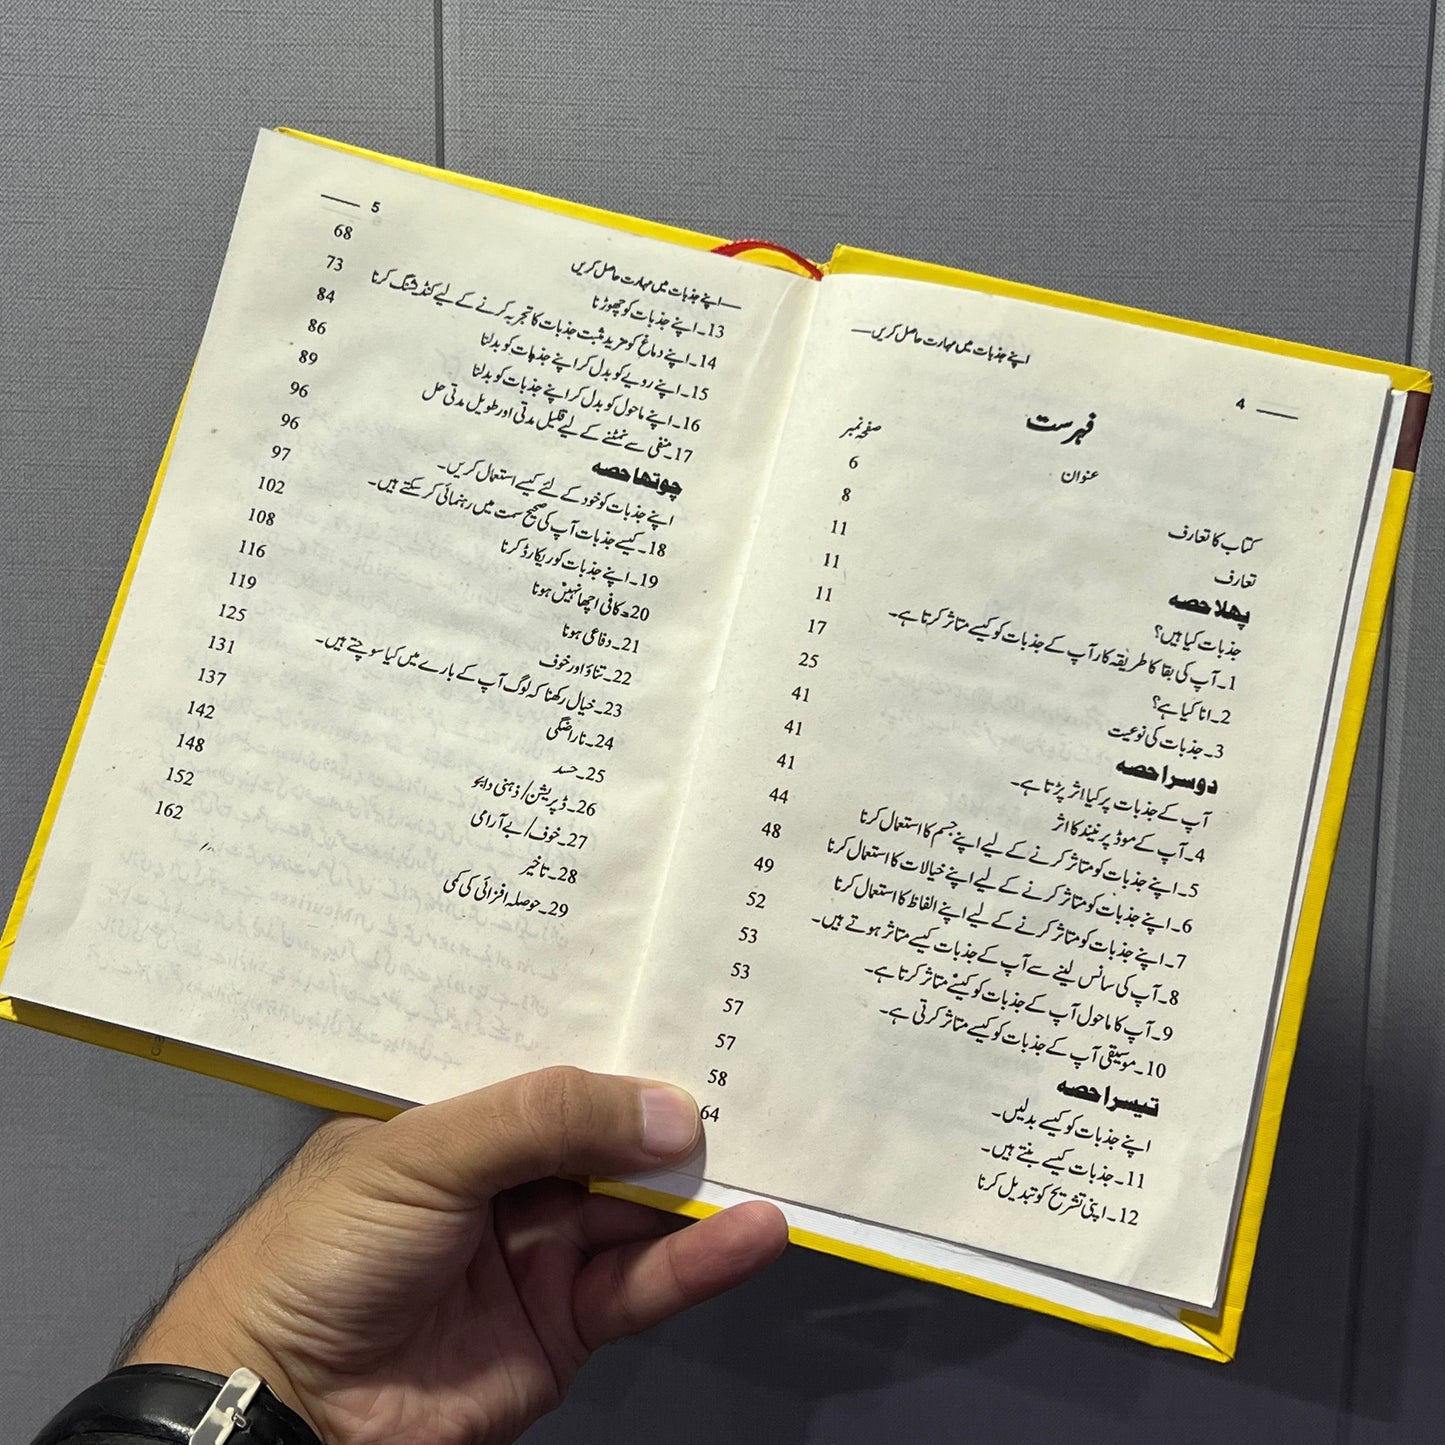 اپنے جذبات میں مہارت حاصل کریں 4
فہرست
عنوان صفحہ نمبر
کتاب کا تعارف 6
تعارف 8
پہلا حصہ 11
جذبات کیا ہیں؟ 11
1۔ آپ کی بقا کا طریقہ کار آپ کے جذبات کو کیسے متاثر کرتا ہے۔ 11
2۔ انا کیا ہے؟ 17
3۔ جذبات کی نوعیت 25
دوسرا حصہ 41
آپ کے جذبات پر کیا اثر پڑتا ہے۔ 41
4۔ آپ کے موڈ پر نیند کا اثر 41
5۔ اپنے جذبات کو متاثر کرنے کے لیے اپنے جسم کا استعمال کرنا 44
6۔ اپنے جذبات کو متاثر کرنے کے لیے اپنے خیالات کا استعمال کرنا 48
7۔ اپنے جذبات کو متاثر کرنے کے لیے اپنے الفاظ کا استعمال کرنا 49
8۔ آپ کی سانس لینے سے آپ کے جذبات کیسے متاثر ہوتے ہیں۔ 52
9۔ آپ کا ماحول آپ کے جذبات کو کیسے متاثر کرتا ہے۔ 53
10۔ موسیقی آپ کے جذبات کو کیسے متاثر کرتی ہے۔ 53
تیسرا حصہ 57
اپنے جذبات کو کیسے بدلیں۔ 57
11۔ جذبات کیسے بنتے ہیں۔ 58
12۔ اپنی تشریح کو تبدیل کرنا 64
اپنے جذبات میں مہارت حاصل کریں 5
13۔ اپنے جذبات کو چھوڑنا 68
14۔ اپنے دماغ کو مزید مثبت جذبات کا تجربہ کرنے کے لیے کنڈیشنگ کرنا 73
15۔ اپنے رویے کو بدل کر اپنے جذبات کو بدلنا 84
16۔ اپنے ماحول کو بدل کر اپنے جذبات کو بدلنا 86
17۔ منفی سے نمٹنے کے لیے قلیل مدتی اور طویل مدتی حل 89
چوتھا حصہ 96
اپنے جذبات کو خود کے لئے کیسے استعمال کریں۔ 96
18۔ کیسے جذبات آپ کی صحیح سمت میں رہنمائی کر سکتے ہیں۔ 97
19۔ اپنے جذبات کو ریکارڈ کرنا 102
20۔ کافی اچھا نہیں ہونا 108
21۔ دفاعی ہونا 116
22۔ تناؤ اور خوف 119
23۔ خیال رکھنا کہ لوگ آپ کے بارے میں کیا سوچتے ہیں۔ 125
24۔ ناراضگی 131
25۔ حسد 137
26۔ ڈپریشن/ذہنی دباؤ 142
27۔ خوف/بے آرامی 148
28۔ تاخیر 152
29۔ حوصلہ افزائی کی کمی 162